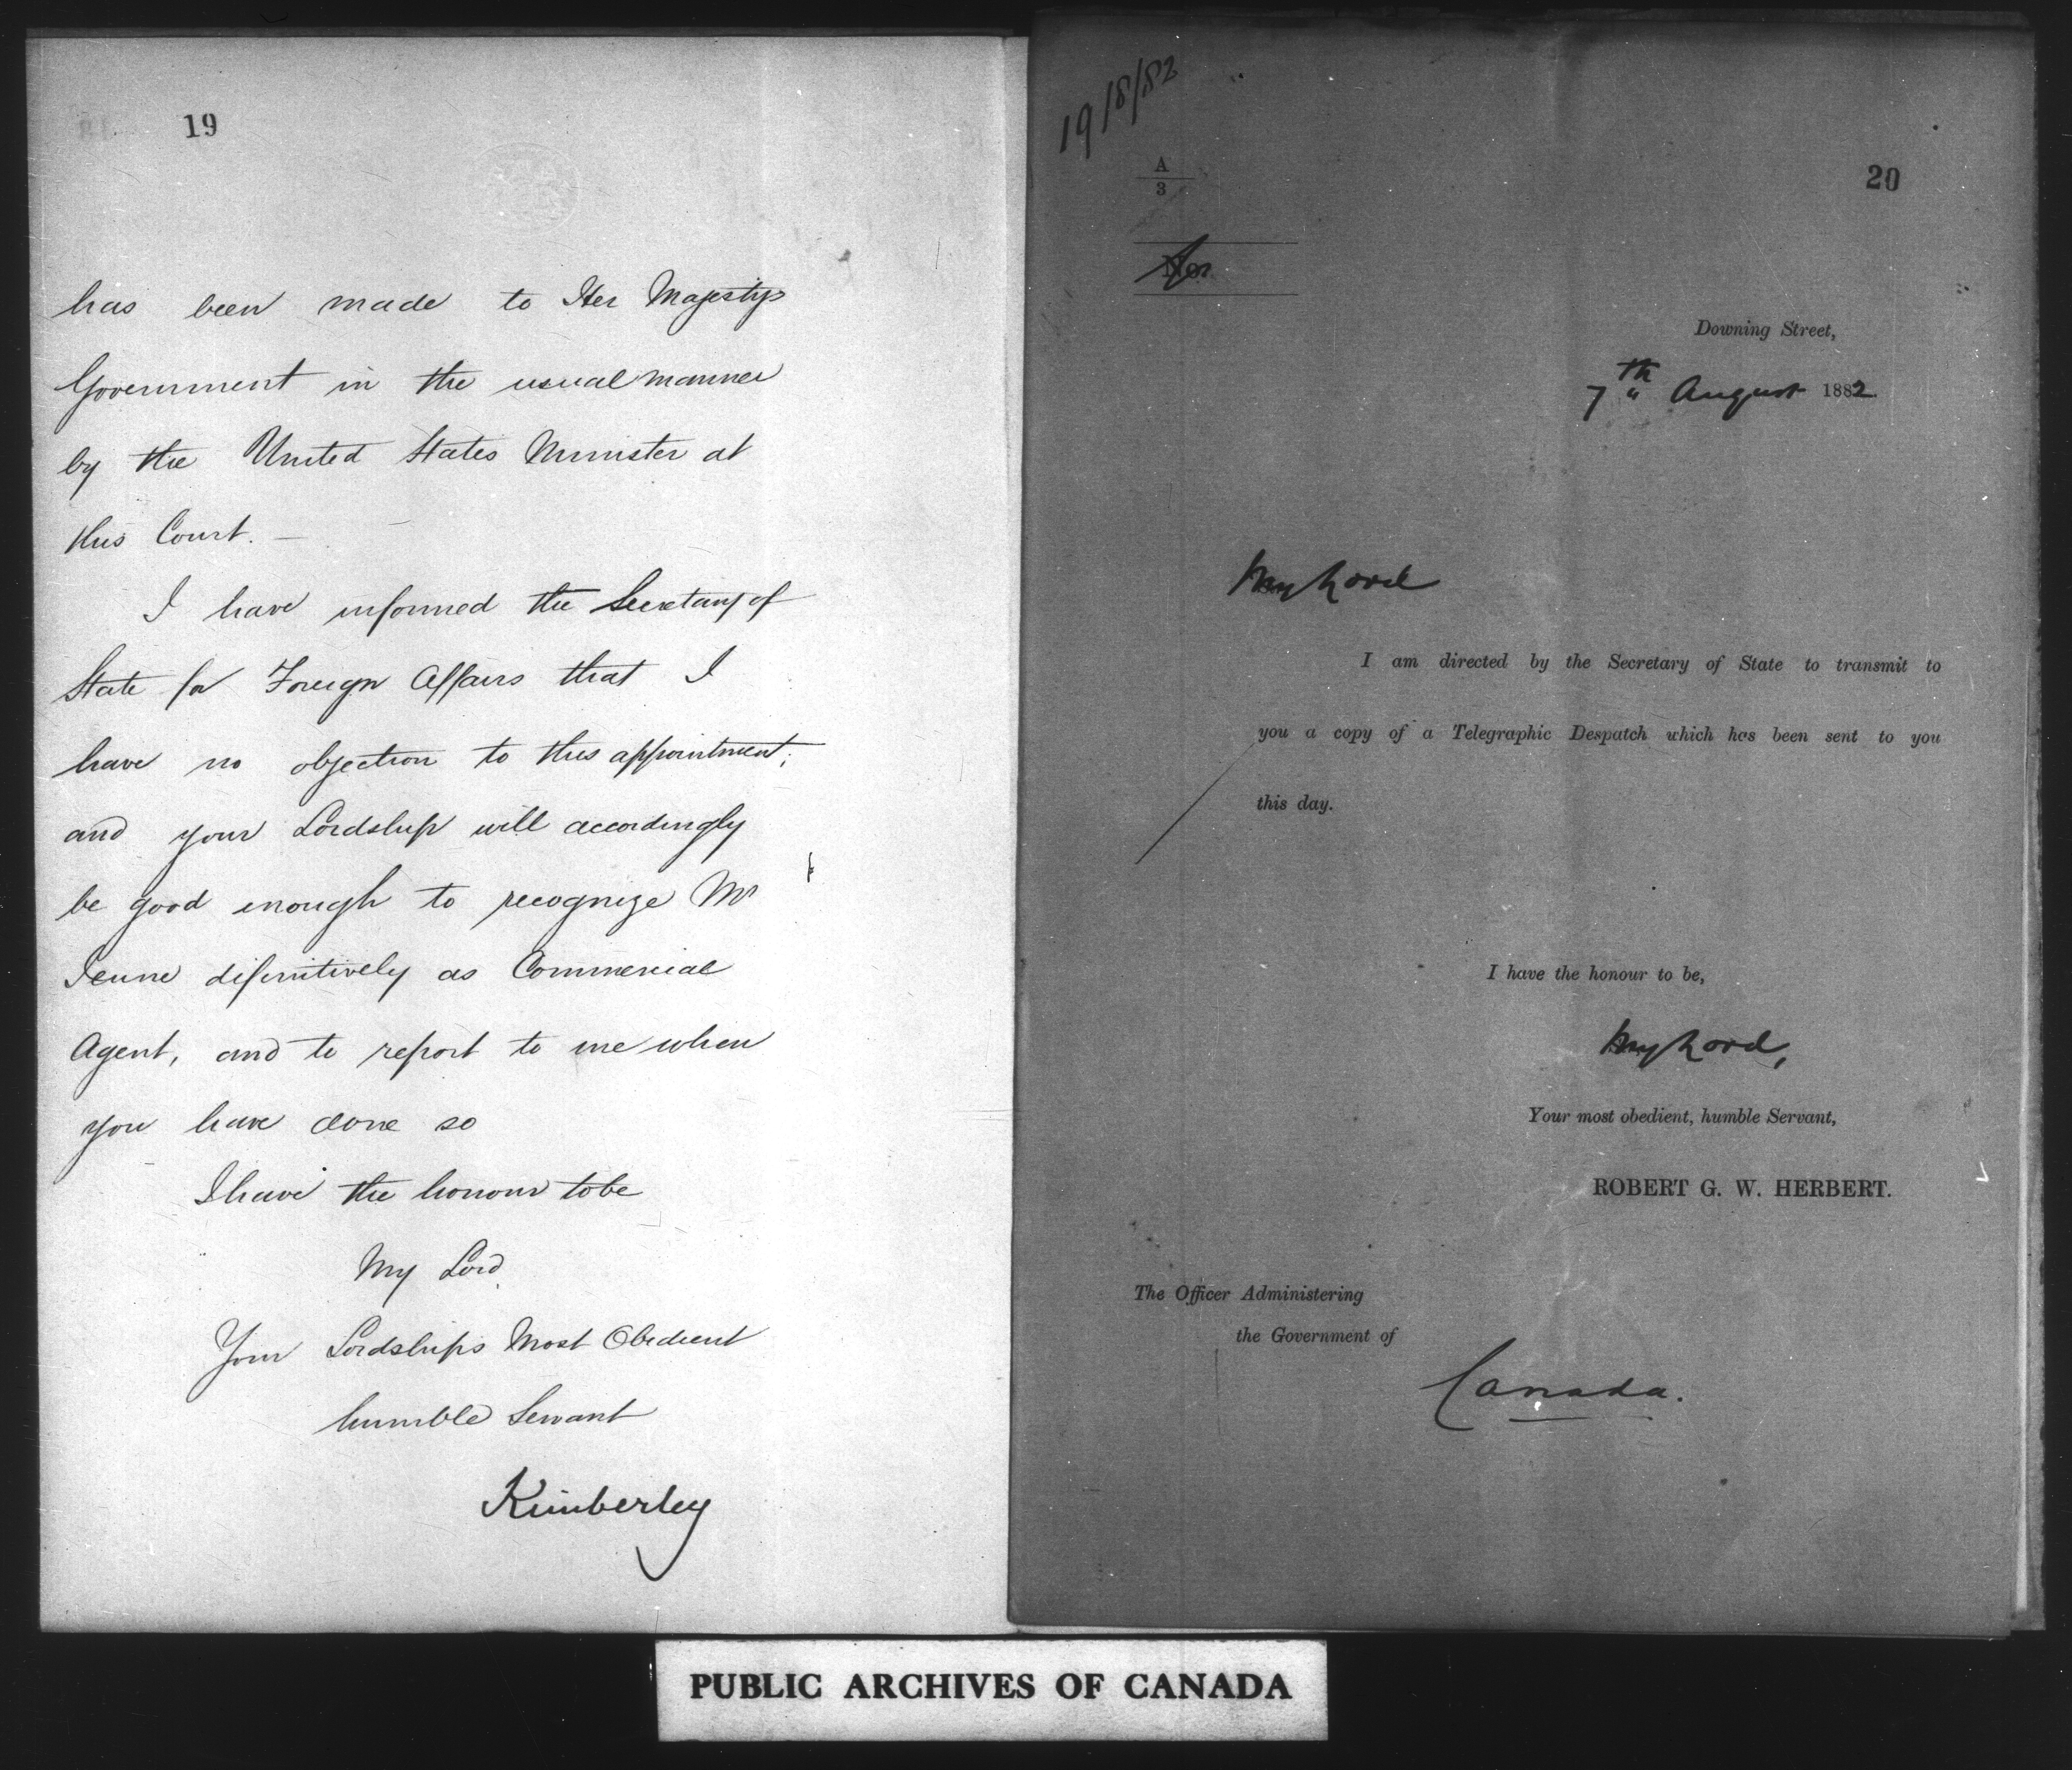 19
has been made to Her Majestys
Government in the usual manner
by the United States Minister at
this Court. —
I have informed the Secretary of
State for Foreign Affairs that I
have no objection to this appointment;
and your Lordship will accordingly
be good enough to recognize Mr
definitively as Commercial
Agent, and to report to me when
you have done so
I have the honour to be
My Lord
Your Lordships Most Obedient
humble Servant
Kimberley
19/8/82
A
3
20
No.
Downing Street,
7th August 1882
My Lord
I am directed by the Secretary of State to transmit to
you a copy of a Telegraphic Despatch which has been sent to you
this day.
I have the honour to be,
My Lord,
Your most obedient, humble Servant,
ROBERT G. W. HERBERT.
The Officer Administering
the Government of
Canada.
PUBLIC ARCHIVES OF CANADA